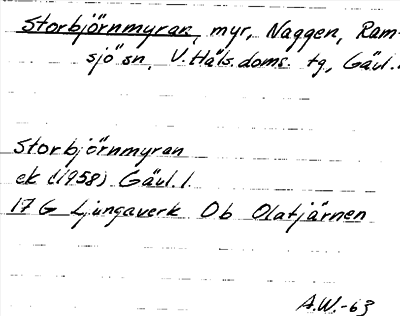 Storbjörnmyran, myr, Naggen, Ram-
sjö sn, V. Häls. doms. tg, Gävl.
Storbjörnmyran
ek (1958) Gävl. l.
17 G Ljungaverk Ob Olatjärnen
A.W.-63